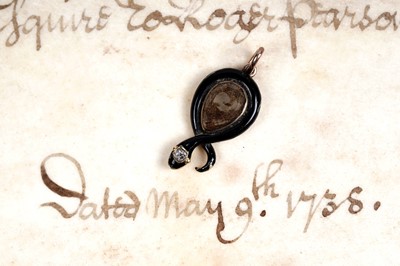 Squire To Roger Pearso
Dated May 9th. 1738.